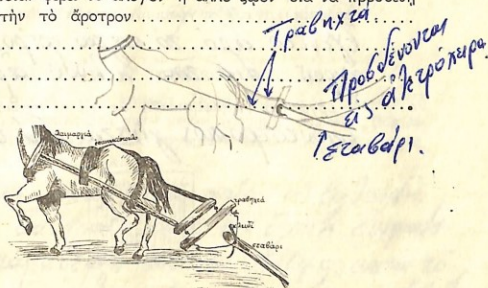 τὴν τὸ ἄροτρον
Τραβηχτά.
Προσδένονται
εἰς ἀλετρόχειρα.
Σταβάρι.
λαιμαριά
τραβηχτά
κλειδὶ
σταβάρι